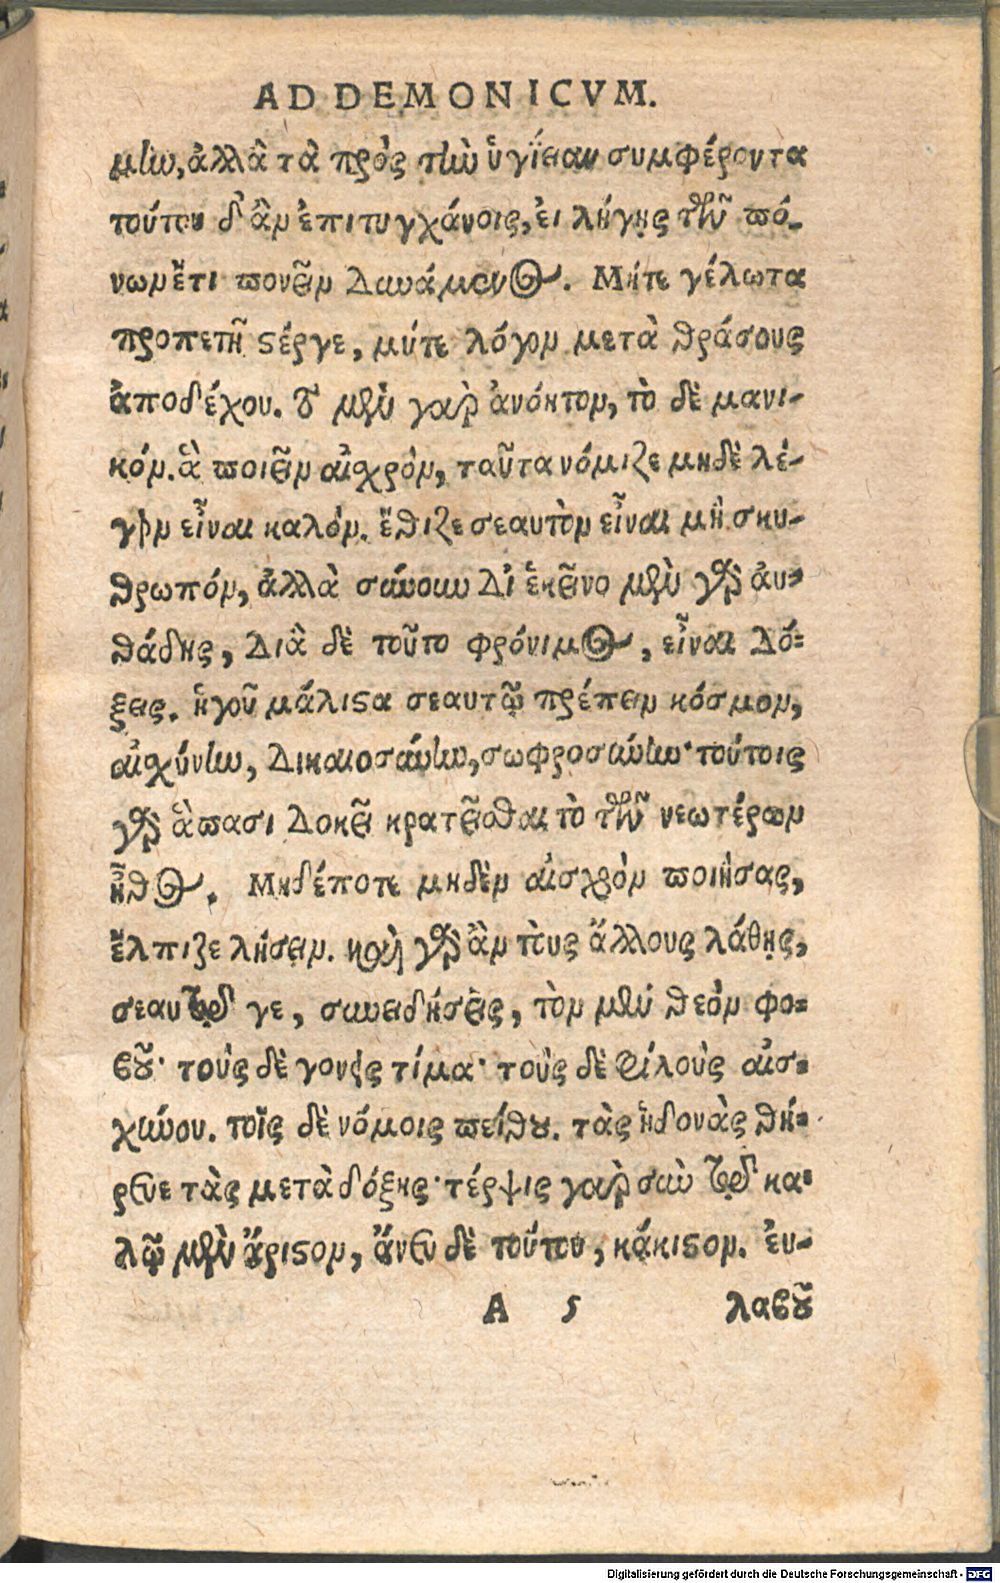 AD DEMONICVM.
μίω, ἀλλὰ τὰ πρὸς τὴν ὑγίειαν συμφέροντα
τούτου δ' ἂν ἐπιτυγχάνοις, ἐι λήγῃς τῶν πό-
νων ἔτι πονεῖν δυνάμενος. Μήτε γέλωτα
προπετῆ στέργε, μήτε λόγον μετὰ θράσους
ἀποδέχου. τὸ μὲν γὰρ ἀνόητον, τὸ δὲ μανι-
κόν. ἃ ποιεῖν αἰσχρὸν, ταῦτα νόμιζε μηδὲ λέ-
γειν εἶναι καλόν. ἔθιζε σεαυτὸν εἶναι μὴ σκυ-
θρωπόν, ἀλλὰ σύνουν δι ἐκεῖνο μὲν γὰρ ἀυ-
θάδης, διὰ δὲ τοῦτο φρόνιμος, εἶναι δό-
ξεις. ἡγοῦ μάλιστα σεαυτῷ πρέπειν κόσμον,
αἰσχύνην, δικαιοσύνην, σωφροσύνην· τούτοις
γὰρ ἅπασι δοκεῖ κρατεῖσθαι τὸ τῶν νεωτέρων
ἦθος. Μηδέποτε μηδὲν αἰσχρὸν ποιήσας,
ἔλπιζε λήσειν. καὶ γὰρ ἂν τοὺς ἄλλους λάθῃς,
σεαυτῷ γε, συνειδήσεις, τὸν μὲν θεὸν φο-
βοῦ· τοὺς δὲ γονεῖς τίμα· τοὺς δὲ φίλους αἰσ-
χύνου. τοῖς δὲ νόμοις πείθου. τὰς ἡδονὰς θή-
ρευε τὰς μετὰ δόξης· τέρψις γὰρ σὺν τῷ κα-
λῷ μὲν ἄριστον, ἄνευ δὲ τούτου, κάκιστον. ἐυ-
A 5 λαβοῦ
Digitalisierung gefördert durch die Deutsche Forschungsgemeinschaft - DFG